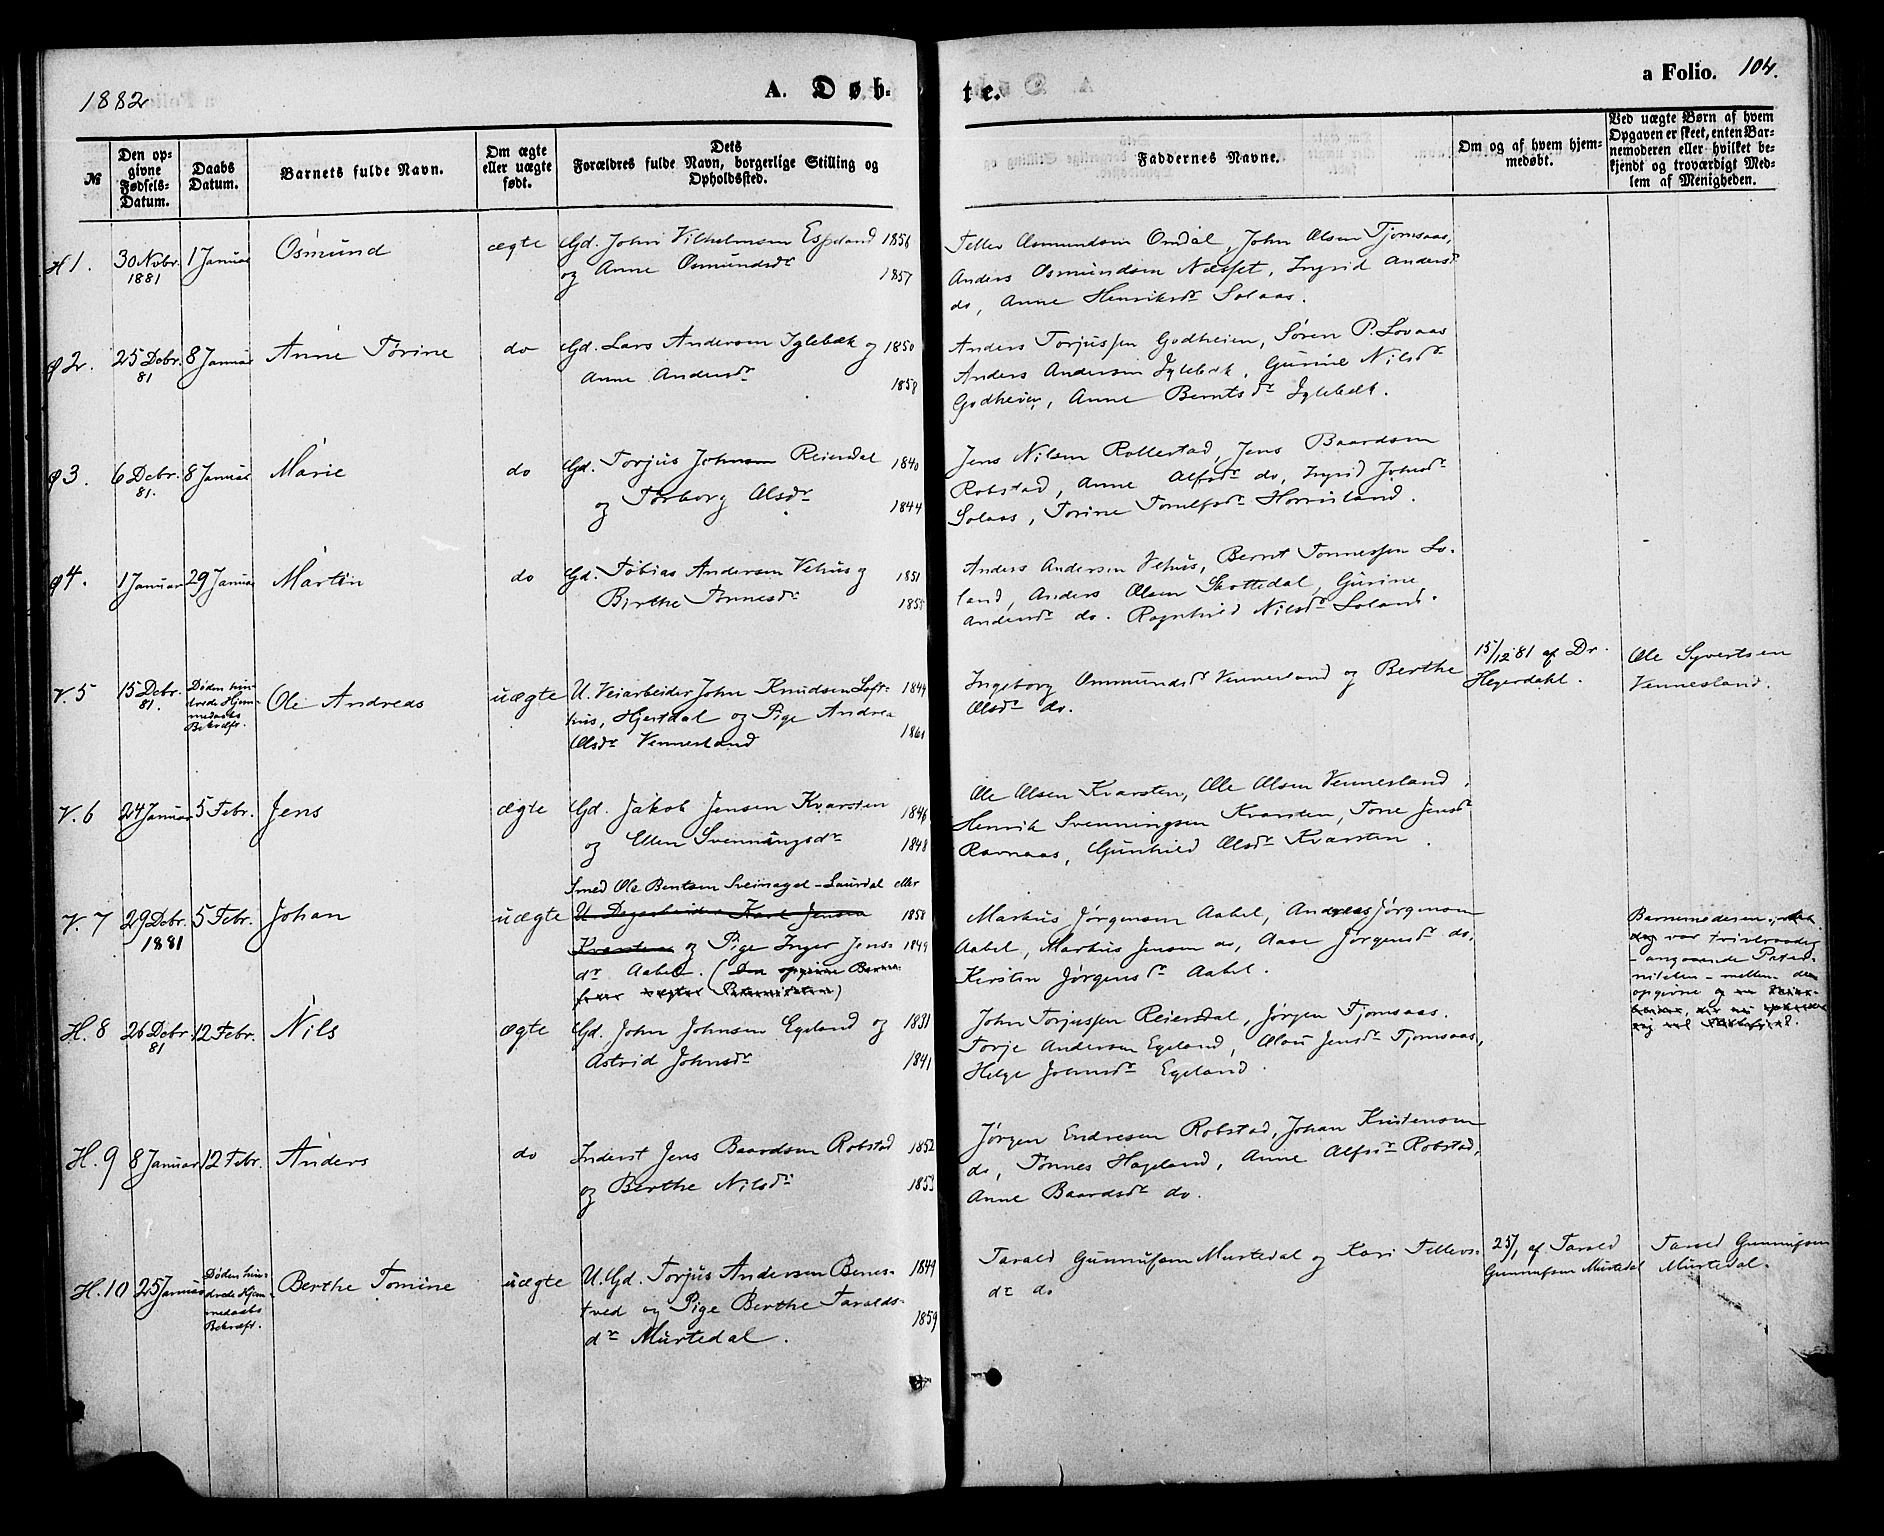 1882
A. Døb-
te.
a Folio. 104.
№
Den op-
givne
Fødsels-
Datum.
Daabs
Datum.
Barnets fulde Navn.
Om ægte
eller uægte
født.
Dets
Forældres fulde Navn, borgerlige Stilling og
Opholdssted.
Faddernes Navne.
Om og af hvem hjem-
medøbt.
Ved uægte Børn af hvem
Opgaven er skeet, enten Bar-
nemoderen eller hvilket be-
kjendt og troværdigt Med-
lem af Menigheden.
H 1.
30 Novbr.
1881
1 Januar
Osmund
ægte
Gd. John Vilhelmsen Espeland 1856
og Anne Osmundsdr
1857
Tellev Osmundsen Omdal, John Olsen Tjomsaas,
Anders Osmundsen Næsset, Ingrid Andersdr
do, Anne Henriksdr Solaas.
Ø 2.
25 Debr.
81
8 Januar
Anne Torine
do
Gd. Lars Andersen Iglebæk og 1850
Anne Andersdr
1858
Anders Torjussen Godheien, Søren P. Lovaas
Anders Andersen Iglebæk, Gurine Nilsdr
Godheien, Anne Berntsdr Iglebæk.
Ø 3.
6 Debr.
81.
8 Januar
Marie
do
Gd. Torjus Johnsen Reiersdal 1840
og Torborg Olsdr
1844
Jens Nilsen Rollestad, Jens Baardsen
Robstad, Anne Alfsdr do, Ingrid Johnsdr
Solaas, Torine Tomlfsdr Homsland.
Ø 4.
1 Januar
29 Januar
Martin
do
Gd. Tobias Andersen Vehus og 1851
Birthe Tønnesdr
1855
Anders Andersen Vehus, Bernt Tønnessen Lo-
land, Anders Olsen Skottedal, Gurine
Andersdr do. Ragnhild Nilsdr Loland.
V. 5
15 Debr.
81.
Døden hin-
drede Hjem-
medaabs
Bekræft.
Ole Andreas
uægte
U. Veiarbeider John Knudsen Loft- 1844
hus, Hjertdal og Pige Andrea
1861
Olsdr Vennesland
Ingeborg Ommundsdr Vennesland og Berthe
Olsdr do.
15/12 81 af Dr.
Heyerdahl.
Ole Syvertsen
Vennesland.
V. 6
24 Januar
5 Febr.
Jens
ægte
Gd. Jakob Jensen Kvarsten 1846
og Ellen Svenningsdr 1848
Ole Olsen Kvarsten, Ole Olsen Vennesland,
Henrik Svenningsen Kvarsten, Tone Jensdr
Ravnaas, Gunhild Olsdr Kvarsten.
V. 7
29 Debr.
1881
5 Febr.
Johan
uægte
Smed Ole Bentsen Sveinaget - Laurdal eller
U. Dagarbeider Karl Jensen 1858
Kvarsten og Pige Inger Jens- 1849
dr Aabel. (Den opgivne Barne-
fader nægter Paterniteten)
Markus Jørgensen Aabel, Andreas Jørgensen
Aabel, Markus Jensen do, Aase Jørgensdr do,
Kersten Jørgensdr Aabel.
Barnemoderen,
var tvivlraadig
- angaaende Pater-
niteten - mellem den
opgivne og
H. 8
26 Debr
81
12 Febr.
Nils
ægte
Gd. John Johnsen Egeland og 1831
Astrid Johnsdr
1841
John Torjussen Reiersdal, Jørgen Tjomsaas.
Torje Andersen Egeland, Jensdr Tjomsaas,
Helge Johnsdr Egeland.
H. 9
8 Januar
12 Febr.
Anders
do
Inderst Jens Baardsen Robstad 1852
og Berthe Nilsdr
1853
Jørgen Endresen Robstad, Johan Kristensen
do, Tønnes Hageland, Anne Alfsdr Robstad,
Anne Baardsdr do.
H. 10
25 Januar
Døden hin-
drede Hjem-
medaabs
Bekræft.
Berthe Tomine
uægte
U. Gd. Torjus Andersen Benes- 1849
tved og Pige Berthe Taralds-
1859
dr Murtedal.
Tarald Gunnufsen Murtedal og Kari Tellevs-
dr do
25/1 af Tarald
Gunnufsen Murtedal
Tarald Gunnufsen
Murtedal.